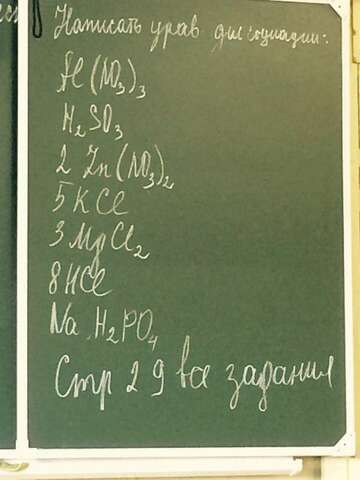 Написать урав диссоциации:
Al(NO₃)₃
H₂SO₃
2 Zn(NO₃)₂
5KCl
3MgCl₂
8HCl
NaH₂PO₄
Стр 29 все задания